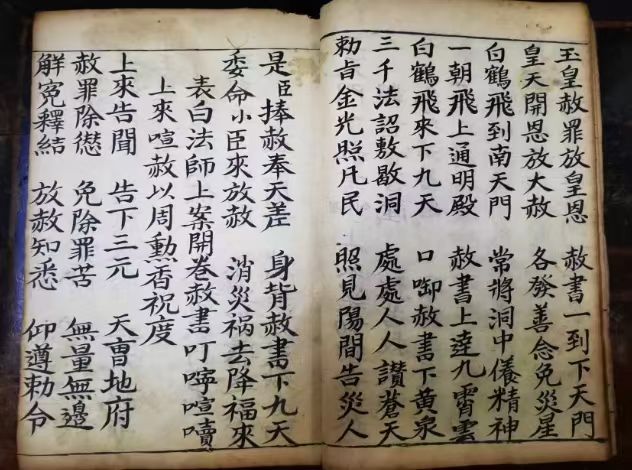 玉皇赦罪放皇恩　赦書一到下天門
皇天開恩放大赦　各發善念免災星
白鶴飛到南天門　常將洞中僊精神
一朝飛上通明殿　赦書上達九霄雲
白鶴飛來下九天　口啣赦書下黄泉
三千法詔敷歇洞　處處人人讚蒼天
勅旨金光照凡民　照見陽間告災人
是臣捧赦奉天差　身背赦書下九天
委命小臣來放赦　消災禍去降福來
表白法師上案開卷赦書叮嚀喧讀
上來喧赦以周動香祝度
上來告聞　告下三元　天曹地府
赦罪除愆　免除罪苦　無量無邊
解冤釋結　放赦知悉　仰遵勅令